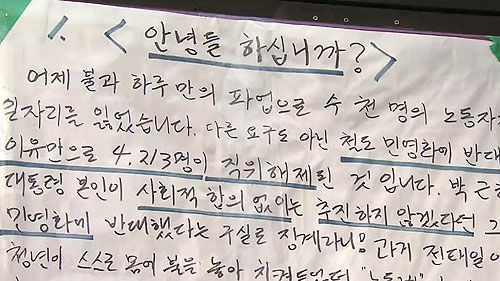 1. < 안녕들 하십니까? >
어제 불과 하루 만의 파업으로 수 천 명의 노동자
일자리를 잃었습니다. 다른 요구도 아닌 철도 민영화에 반대
이유만으로 4,213명이 직위해제된 것 입니다. 박 근
대통령 본인이 사회적 합의 없이는 추진하지 않겠다던 그
민영화에 반대했다는 구실로 징계라니! 과거 전태일
청년이 스스로 몸에 불을 놓아 치켜들었던